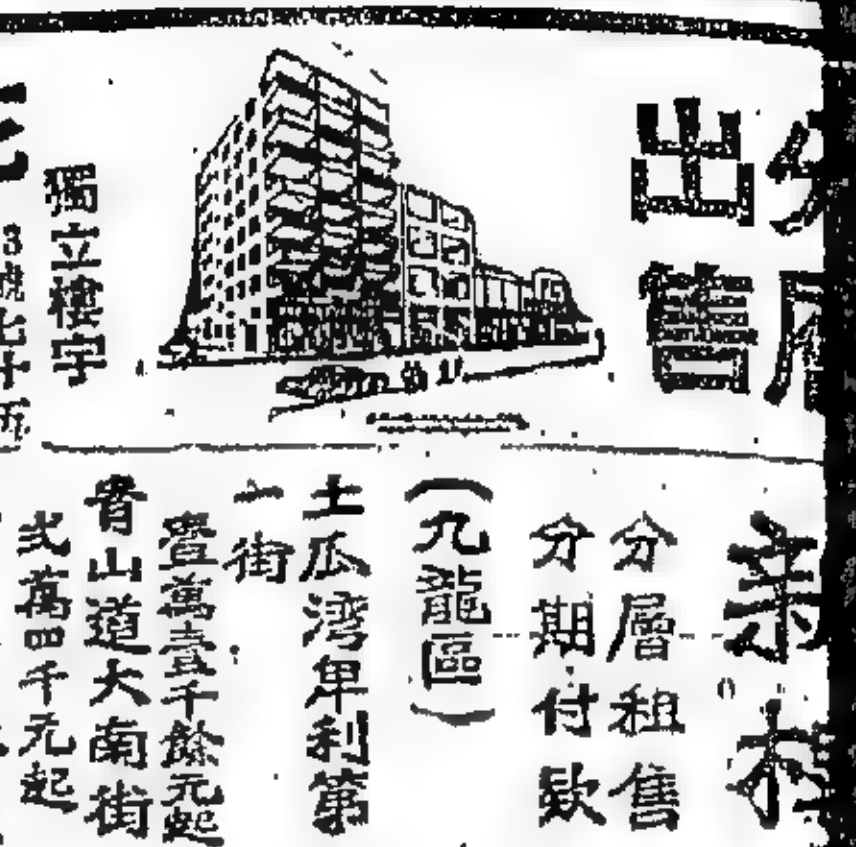 分層
出售
獨立樓宇
3號七十五
分層租售
分期付款
(九龍區)
土瓜湾卑利第
一街
壹萬壹千餘元起
青山道大南街
弍萬四千元起